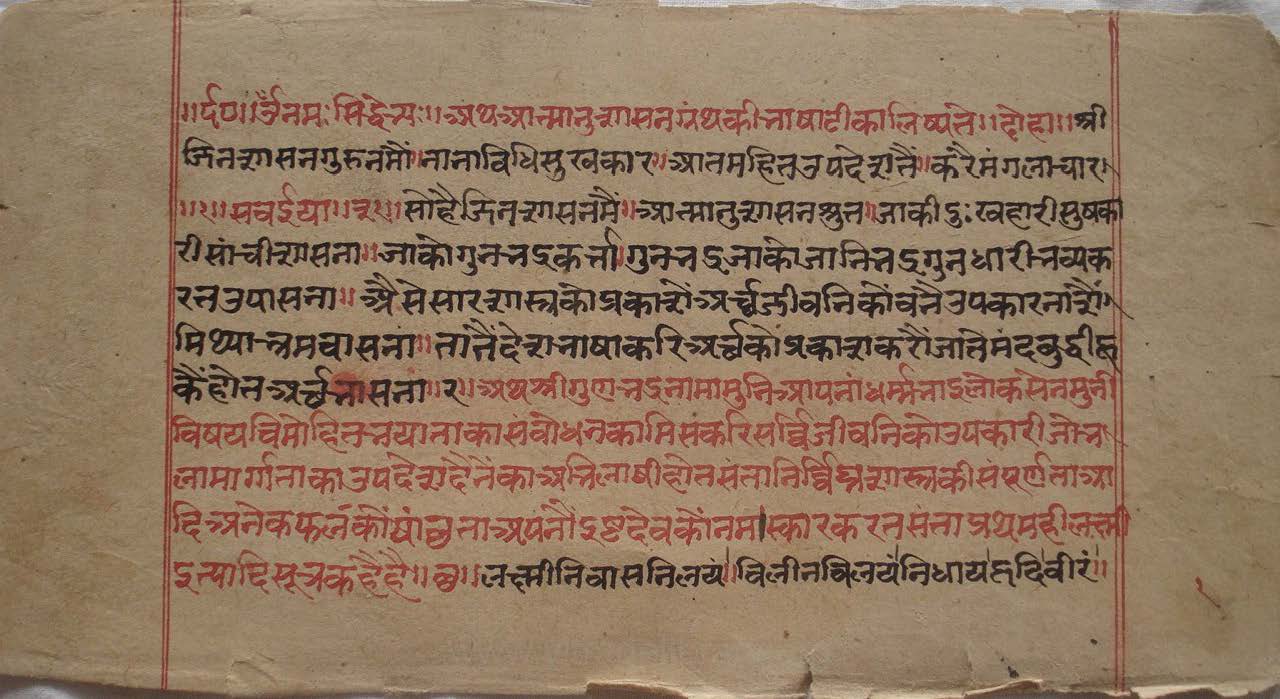 ॥र्द०॥ ॐ नमः सिद्धेभ्यः॥ अथ आत्मानुशासन ग्रंथ की भाषा टीका लिष्यते॥ दोहा॥ श्री
जिनशासन गुरु नमौं॥ नाना विधि सुखकार॥ आतमहित उपदेश तैं॥ करै मंगलाचार॥
॥१॥ सवईया॥ ३१॥ सोहै जिनशासन मैं॥ आत्मानुशासन श्रुत॥ जाकी दुःखहारी सुषका
री सांची शासना॥ जाको गुनभद्र कर्त्ता॥ गुनभद्र जाको जानि भद्र गुनधारी भव्य क
रत उपासना॥ अैसे सार शास्त्र को प्रकाशै अर्त्थ जीवनि कौं बनै उपकार नाशै
मिथ्या भ्रम वासना॥ तातैं देश भाषा करि अर्थ को प्रकाश करौं जातै मंद बुद्धी हू
कैं होत अर्थ भासना॥ २॥ अथ श्री गुणभद्र नामा मुनि आपनां धर्म्म भाइ लोकसेन मुनी
विषय विमोहित भया ताका संबोधन का मिस करि सर्व्व जीवनि को उपकारी जो भ
ला मार्ग ताका उपदेश दैनें का अभिलाषी होत संता निर्व्विघ्न शास्त्र की संपूर्णता आ
दि अनेक फल कौं वांछता अपनौं इष्ट देव कौं नमस्कार करत संता प्रथम ही लक्ष्मी
इत्यादि सूत्र कहै है॥ छ॥ लक्ष्मीनिवासनिलयं॥ विलीनविलयं निधाय हृदि वीरं॥